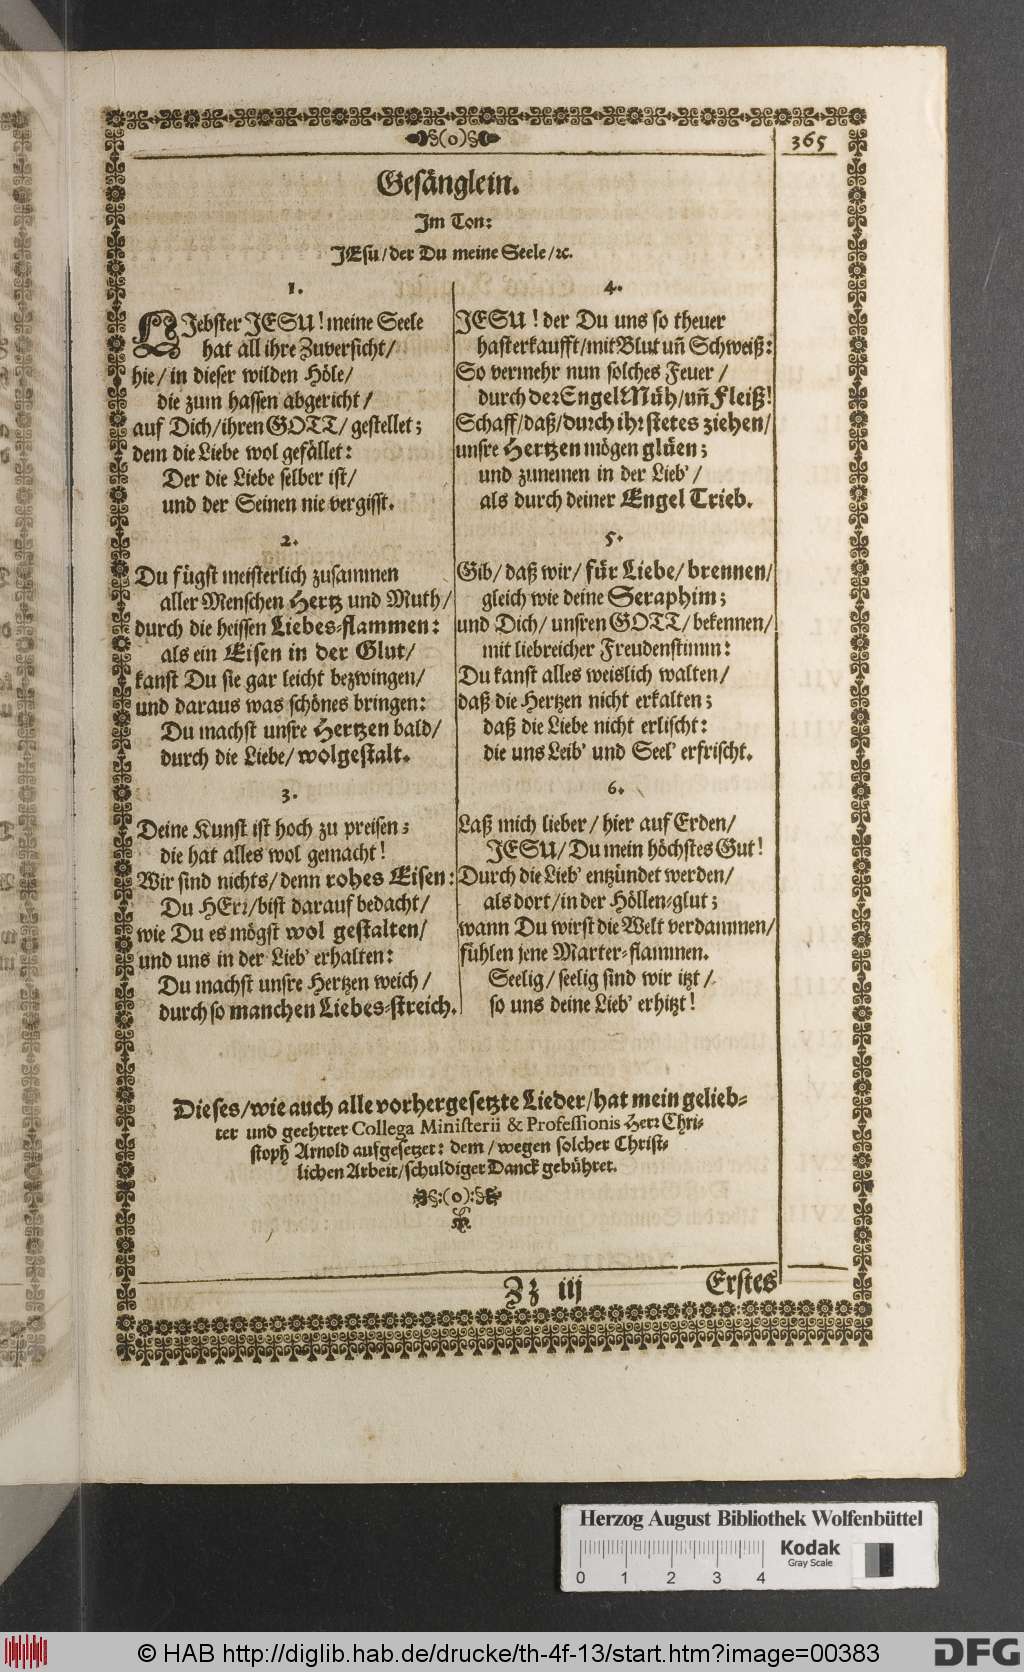 §(o)§
365
Gesänglein.
Im Ton:
JEsu/der Du meine Seele/ꝛc.
1.
LJebster JESU! meine Seele
hat all ihre Zuversicht/
hie/ in dieser wilden Höle/
die zum hassen abgericht/
auf Dich/ihren GOTT/ gestellet;
dem die Liebe wol gefället:
Der die Liebe selber ist/
und der Seinen nie vergisst.
2.
Du fügst meisterlich zusammen
aller Menschen Hertz und Muth/
durch die heissen Liebes-flammen:
als ein Eisen in der Glut/
kanst Du sie gar leicht bezwingen/
und daraus was schönes bringen:
Du machst unsre Hertzen bald/
durch die Liebe/ wolgestalt.
3.
Deine Kunst ist hoch zu preisen;
die hat alles wol gemacht!
Wir sind nichts/ denn rohes Eisen:
Du HErꝛ/bist darauf bedacht/
wie Du es mögst wol gestalten/
und uns in der Lieb' erhalten:
Du machst unsre Hertzen weich/
durch so manchen Liebes-streich.
4.
JESU! der Du uns so theuer
hast erkaufft/mit Blut uñ Schweiß:
So vermehr nun solches Feuer/
durch deꝛ Engel Müh/uñ Fleiß!
Schaff/daß/durch ihꝛ stetes ziehen/
unsre Hertzen mögen glüen;
und zunemen in der Lieb'/
als durch deiner Engel Trieb.
5.
Gib/ daß wir/ für Liebe/ brennen/
gleich wie deine Seraphim;
und Dich/ unsren GOTT/ bekennen/
mit liebreicher Freudenstimm:
Du kanst alles weislich walten/
daß die Hertzen nicht erkalten;
daß die Liebe nicht erlischt:
die uns Leib' und Seel' erfrischt.
6.
Laß mich lieber/ hier auf Erden/
JESU/ Du mein höchstes Gut!
Durch die Lieb' entzündet werden/
als dort/in der Höllen-glut;
wann Du wirst die Welt verdammen/
fühlen jene Marter-flammen.
Seelig/ seelig sind wir itzt/
so uns deine Lieb' erhitzt!
Dieses/wie auch alle vorhergesetzte Lieder/hat mein gelieb-
ter und geehrter Collega Ministerii & Professionis Herꝛ Chri-
stoph Arnold aufgesetzet: dem/wegen solcher Christ-
lichen Arbeit/schuldiger Danck gebühret.
§:(o):§
Zz iij
Erstes
Herzog August Bibliothek Wolfenbüttel
Kodak
Gray Scale
0 1 2 3 4
© HAB http://diglib.hab.de/drucke/th-4f-13/start.htm?image=00383
DFG